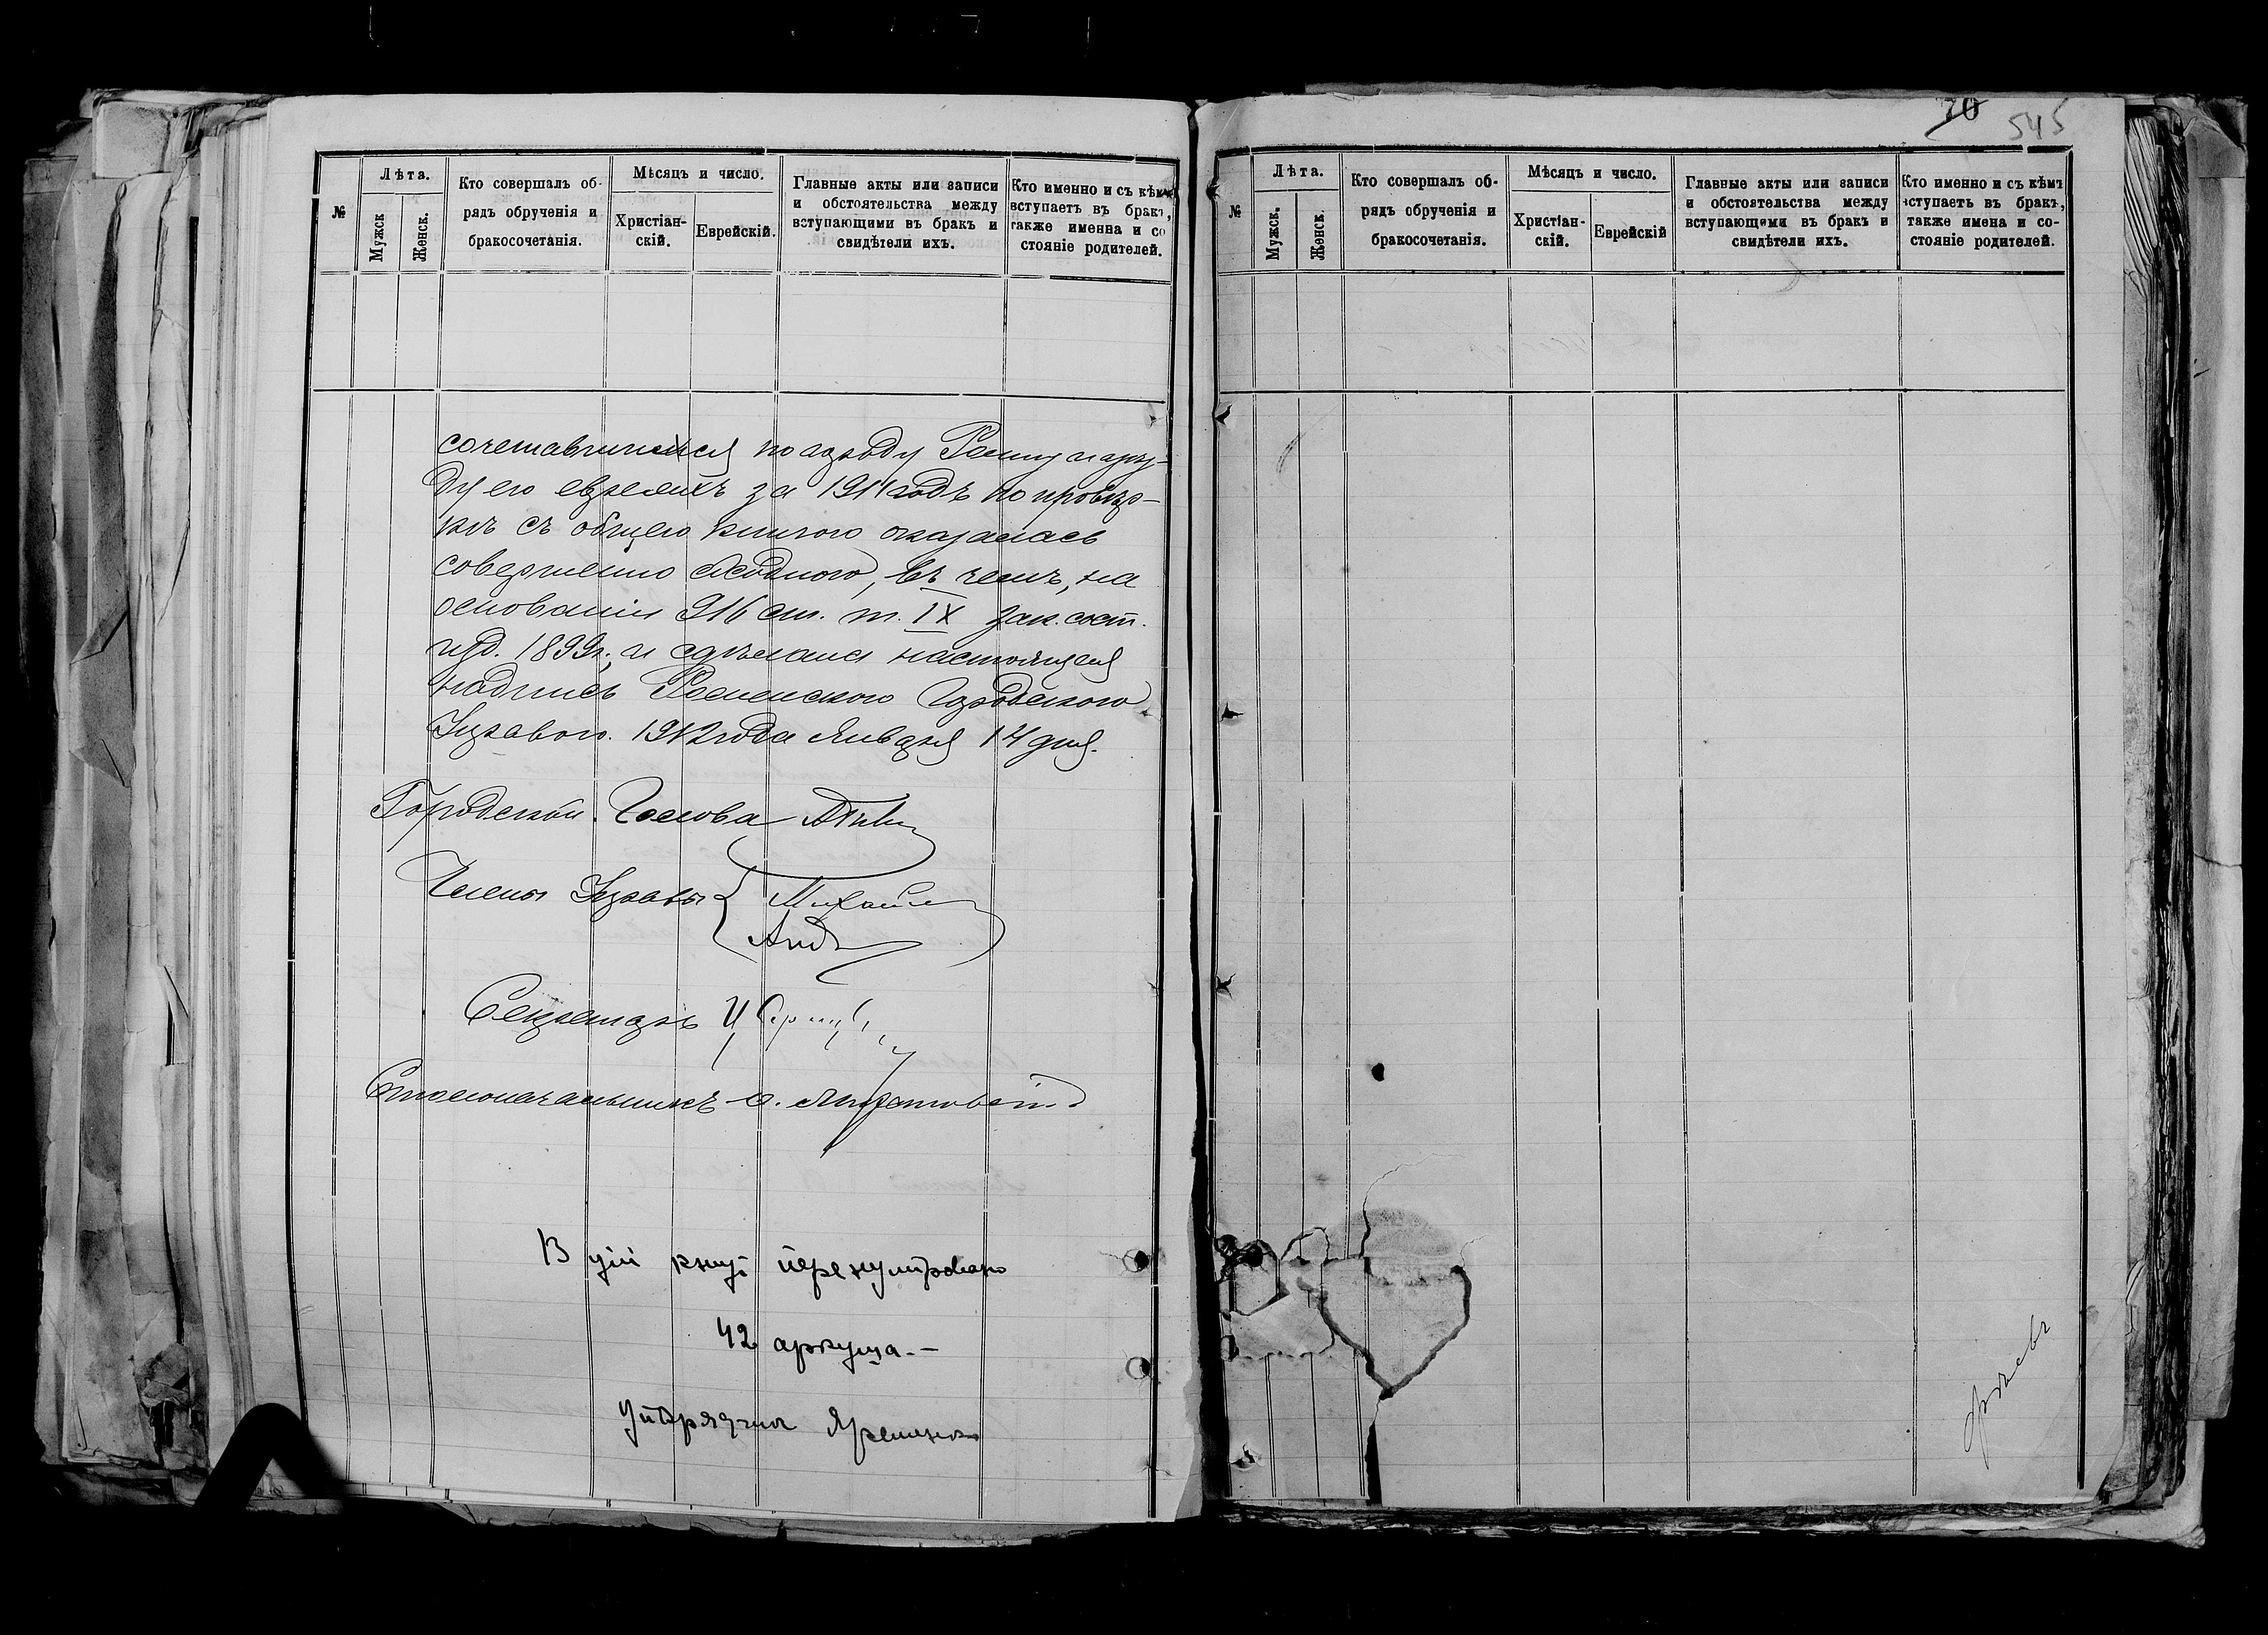 70 545
№
Лѣта.
Мужск
Женск.
Кто совершалъ об-
рядъ обрученія и
бракосочетанія.
Мѣсяцъ и число.
Христіан-
скій.
Еврейскій.
Главные акты или записи
и обстоятельства между
вступающими въ бракъ и
свидѣтели ихъ.
Кто именно и съ кѣмъ
вступаетъ въ бракъ,
также именна и со
стояніе родителей.
сочетавшихся по городу Ромну и
его евреяхъ за 1911 годъ по провѣр-
кѣ съ общею книгою оказалась
совершенно сходною, въ чемъ, на
основаніи 916 ст. т. IX зак. сост.
изд. 1899 г., и сдѣлана настоящая
надпись Роменского Городского
Управою. 1912 года Января 14 дня.
Городской Голова
Члены Управы
Секретарь
Столоначальникъ
В цій книзі перенумеровано
42 аркуша.-
Упорядчик Яременко
№
Лѣта.
Мужск.
Женск.
Кто совершалъ об-
рядъ обрученія и
бракосочетанія.
Мѣсяцъ и число.
Христіан-
скій.
Еврейскій
Главные акты или записи
и обстоятельства между
вступающими въ бракъ и
свидѣтели ихъ.
Кто именно и съ кѣмъ
вступаетъ въ бракъ,
также имена и со-
стояніе родителей.